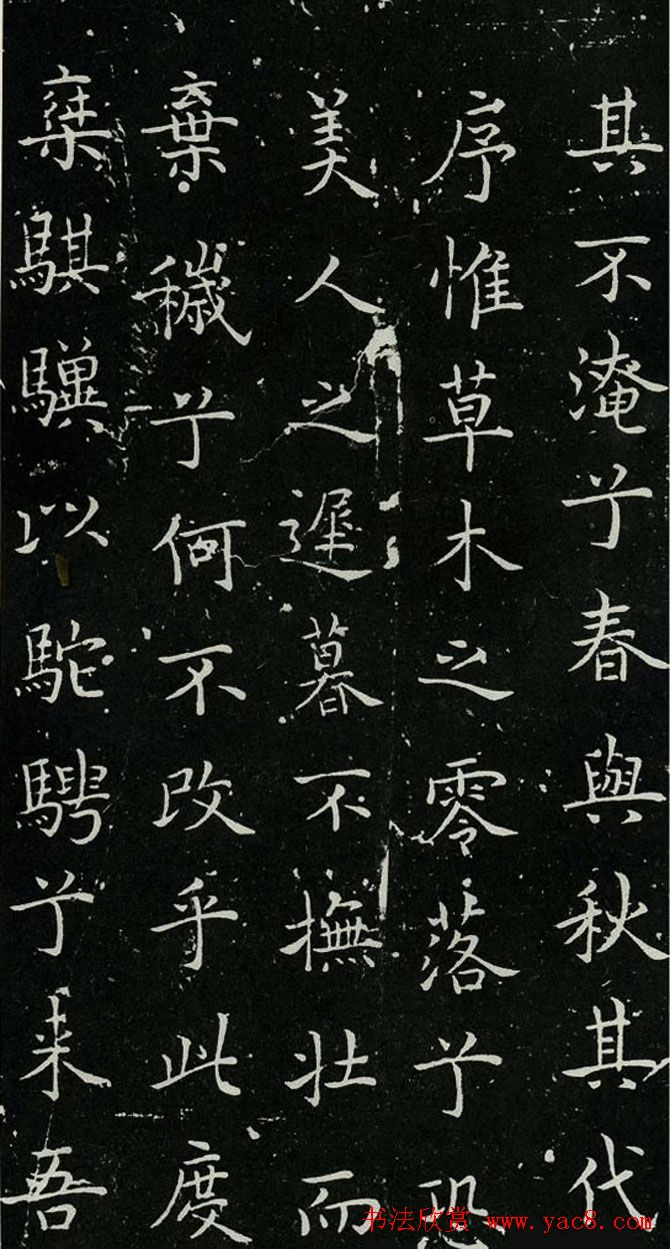 其不淹兮春與秋其代
序惟草木之零落兮恐
美人之遲暮不撫壯而
棄穢兮何不改乎此度
椉騏驥以駝騁兮来吾
书法欣赏 www.yac8.com